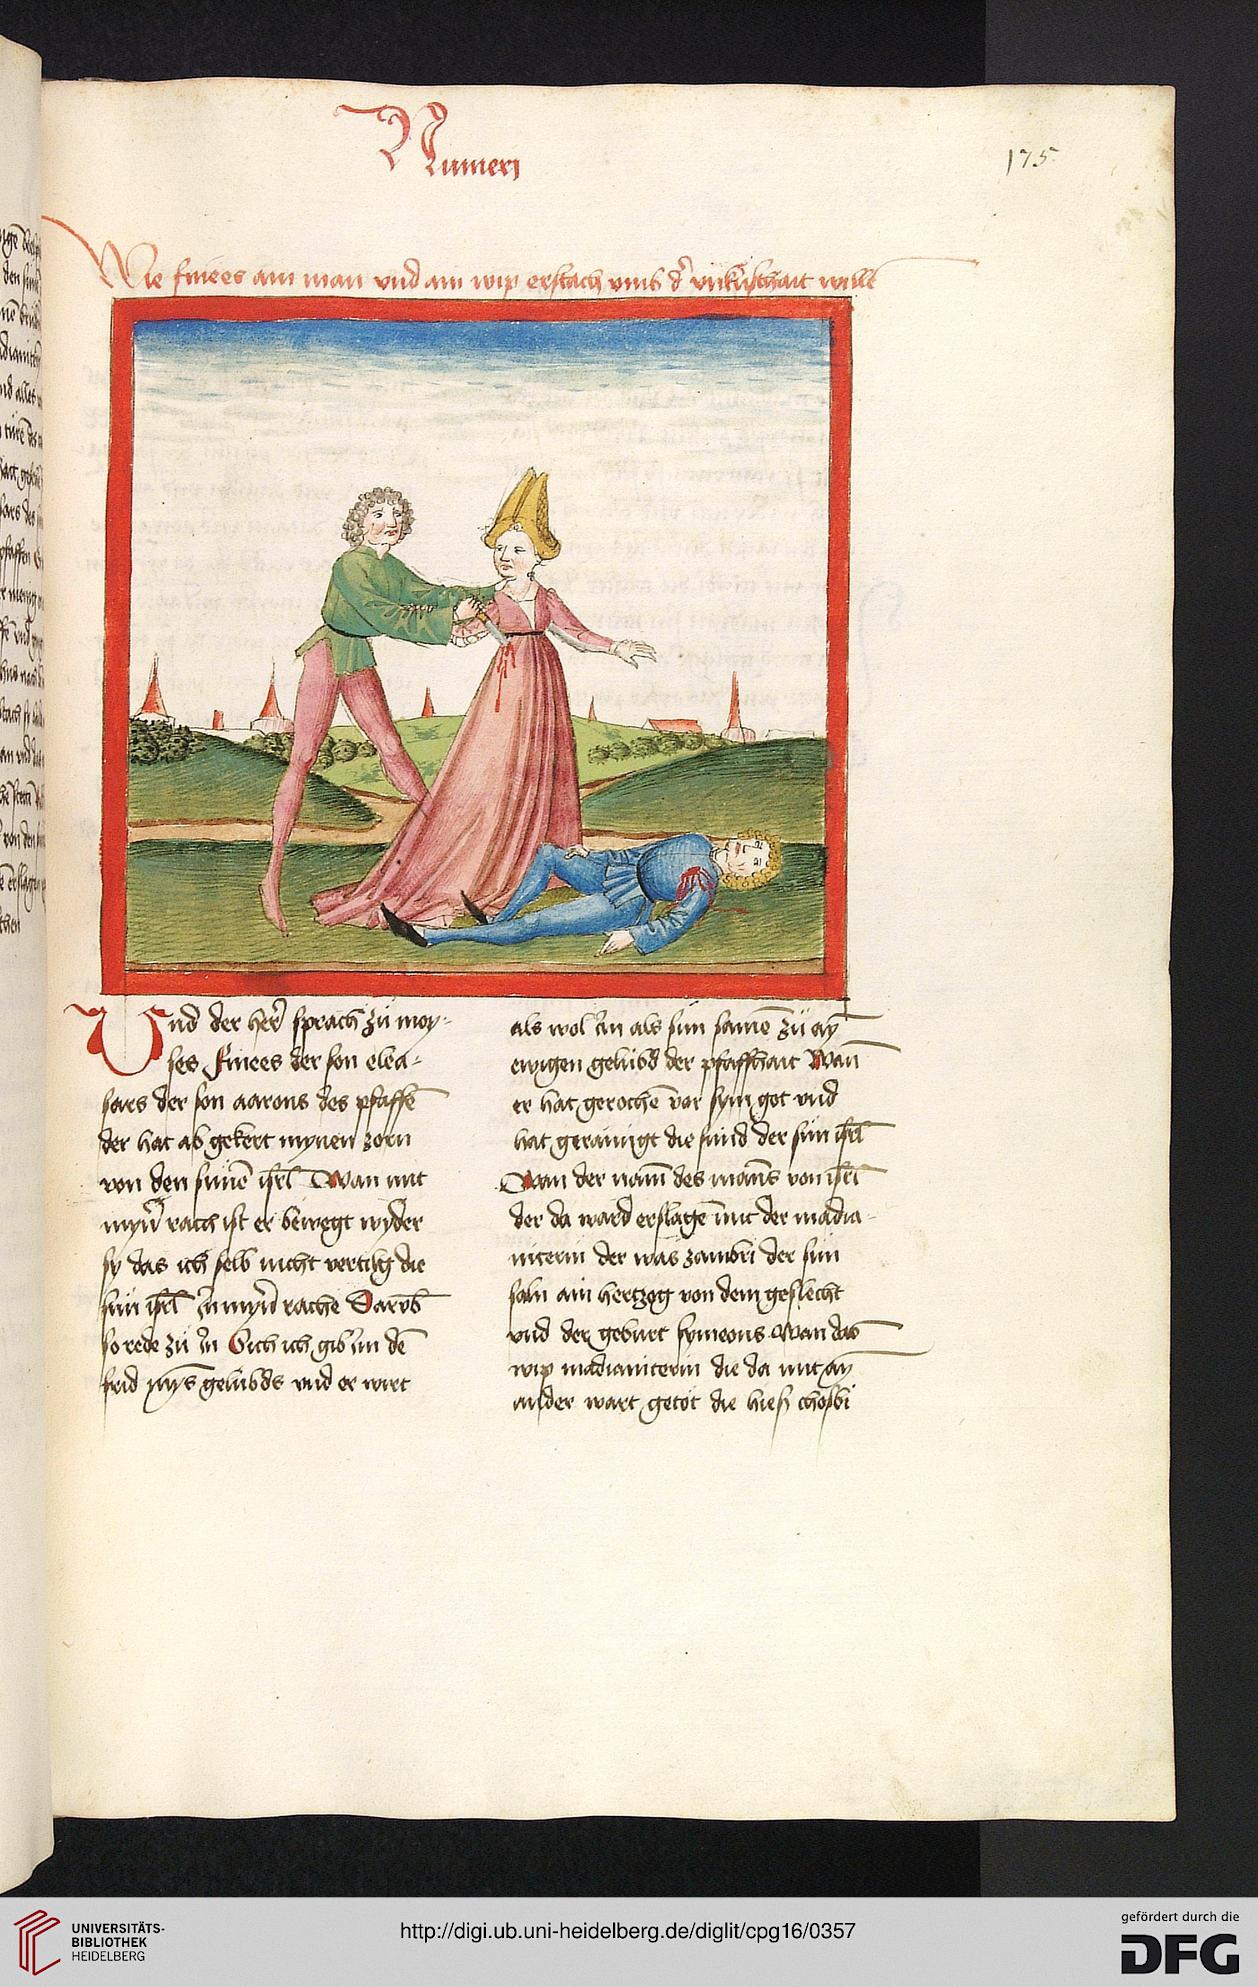 Numeri
175
Wie finees ain man vnd ain wip erstach vmb dͤ vnkuͤschait wille
Vnd der herˀ sprach zuͦ moy-
ses Finees der son elea-
sars der son aarons des pfaffē
der hat ab gekert mynen zorn
von den sünē isrl̄ Wan mit
mynˀ rach ist er bewegt wyder
sy das ich selb nicht vertilg die
sün isrl̄ in mynˀ rache Darvb̄
so rede zuͦ in Sich ich gib im dē
frid myˢ gelübds vnd er wirt
als wol im als sim samē zuͦ ay̅
ewigen gelübd der pfaffhait Wan̄
er hat gerochē vor sym got vnd
hat gerainigt die sünd der sün isrl̄
Wan der nam̄ des man̄s von isrl̄
der da ward erslagē mit der madia-
niterin der was zambri der sün
salu ain hertzog von dem geslecht
vnd der geburt symeons Wan das
wip madianiterin die da mit ay̅
ander wart getöt die hiesz chosbi
UNIVERSITÄTS-
BIBLIOTHEK
HEIDELBERG
http://digi.ub.uni-heidelberg.de/diglit/cpg16/0357
gefördert durch die
DFG